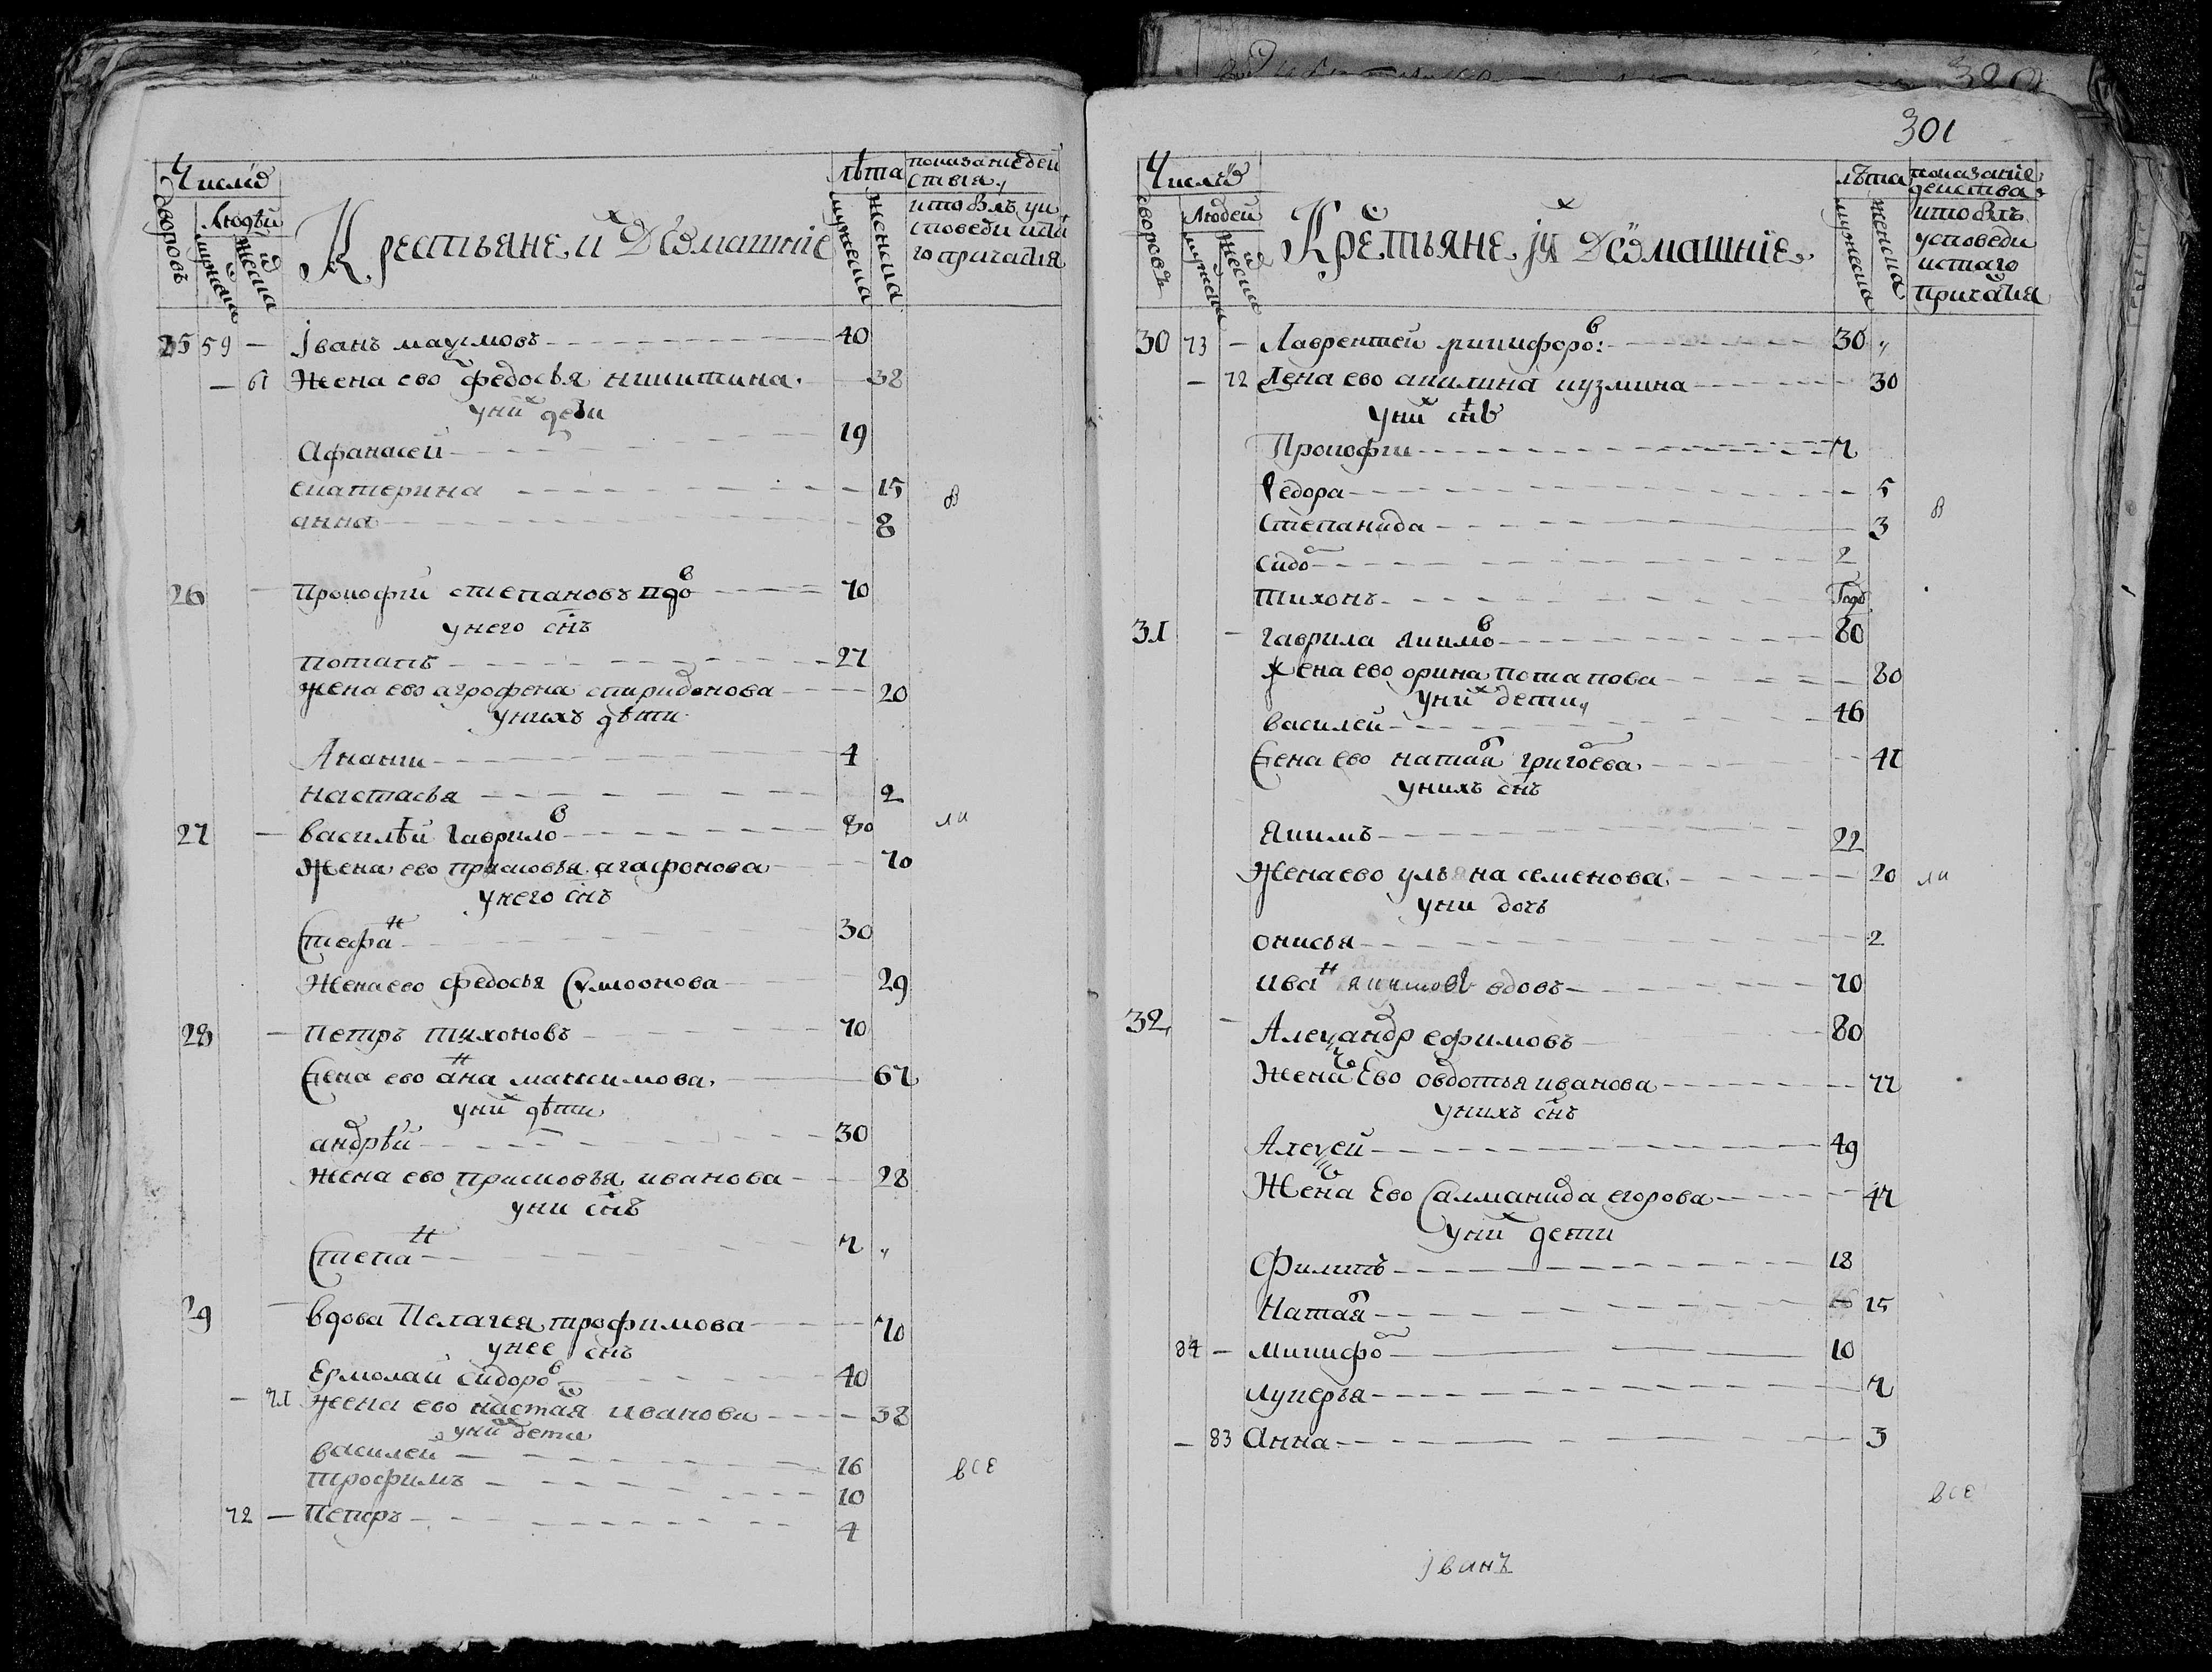 Число
Людѣй
дворовъ
мужска
женска
Крестьяне и х домашніе
лѣта
мужеска
женска
показание дей
ствия
кто былъ у и
споведи и ст͠а
го причастия
25 59 — Іванъ маѯимовъ 40
— 61 Жена ево федосья никитина 38
у них дети
Афанасей 19
екатерина 15
анна 8
в
26 — прокофій степановъ вдов 70
у него сн͠ъ
потапъ 27
жена ево агрофена спиридонова 20
у нихъ дѣти
Анани 4
настасья 2
ли
27 — василѣй гаврилов 80
Жена ево прасковья агафонова 70
у него сн͠ъ
Стефан 30
Жена ево федосья Сѵмоонова 29
28 — петръ тихоновъ 70
Жена ево анна максимова 67
у них дѣти
андрѣй 30
жена ево прасковья иванова 28
у ни сн͠ъ
Степан 7
29 — вдова Пелагея трофимова 70
у нее сн͠ъ
Ермолай сидоров 40
— 71 жена ево настася иванова 38
у них дети
василей 16
трофимъ 10
72 — Петръ 4
все
301
Число
Людей
дворовъ
мужеска
женска
Крестьяне и іх домашніе
лѣта
мужеска
женска
показаніе
действа
кто былъ
у споведи
и ст͠аго
причастия
30 73 — Лаврентей никифоров 30
— 72 Жена ево акилина кузмина 30
у них сн͠ъ
Прокофи 7
Федора 5
Степанида 3
сидор 2
тихонъ Годъ
в
31 — гаврила якимов 80
Жена ево орина потапова 80
у них дети
василей 46
Жена ево наталя григорева 41
у нихъ сн͠ъ
Якимъ 22
Жена ево ульяна семенова 20
у ни дочь
онисья 2
иван якимовъ вдовъ 70
ли
32 — Алеѯандр ефимовъ 80
Жена Ево овдотья иванова 77
у нихъ сн͠ъ
Алеѯей 49
Жена Ево Салманида егорова 47
у них дети
Филипъ 18
Наталя 15
84 — Никифор 10
лукерья 7
— 83 Анна 3
все
Іванъ